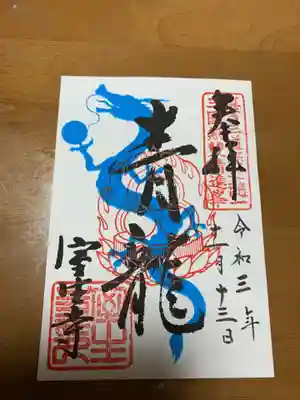 奉拝
令和三年
十一月十三日
青龍
室生寺